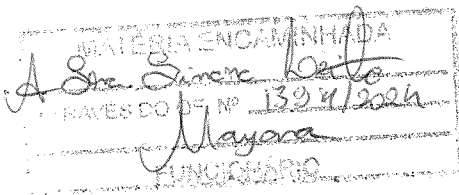 MATÉRIA ENCAMINHADA
A Sra. Simone
ATRAVÉS DO OF. Nº 1394/2024
Mayara
FUNCIONÁRIO